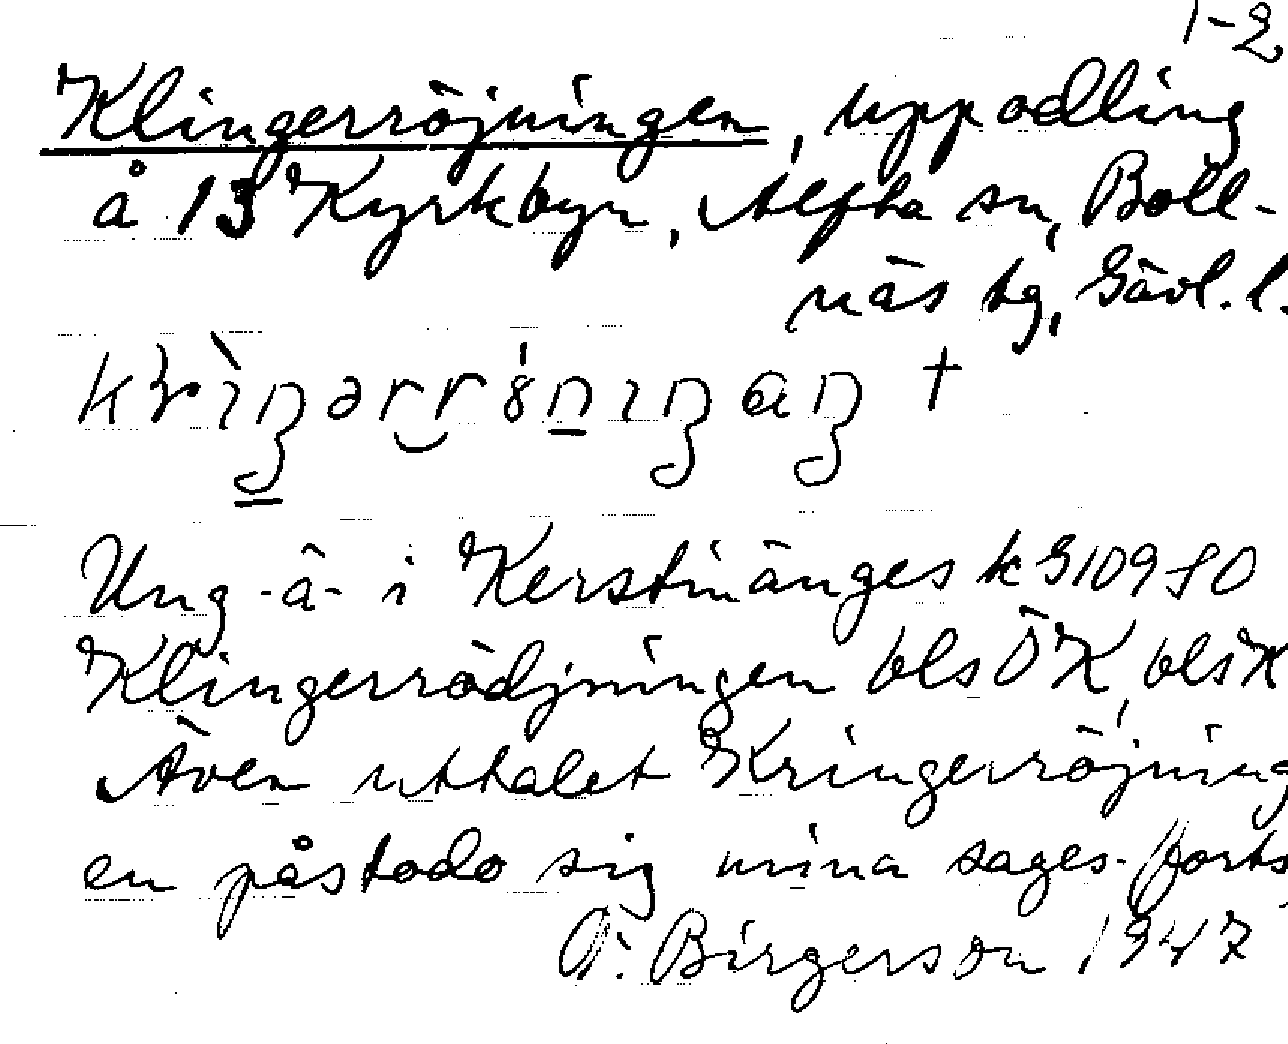 1-2
Klingerröjningen, uppodling
å 13 Kyrkbyn, Alfta sn, Boll-
näs tg, Gävl. l.
Ung -ä- i Kerstinänges k G10980
Klingerrödjningen bls ÖK, bls K
Även uttalet Kringerröjning
en påstodo sig mina sages- /forts
O. Birgerson 1947